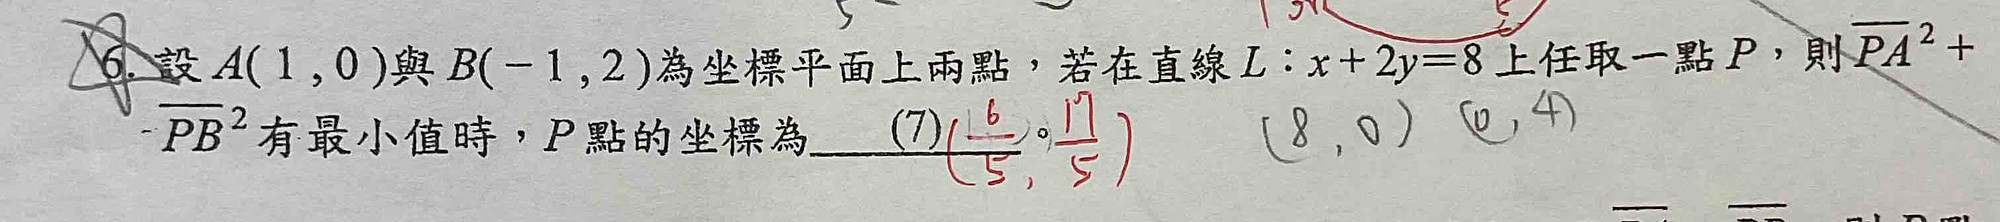 6. 設 A(1,0)與 B(-1,2)為坐標平面上兩點，若在直線 L：x+2y=8 上任取一點 P，則 PA² +
PB² 有最小值時，P 點的坐標為 (7) 。 (6/5, 17/5) (8,0) (0,4)